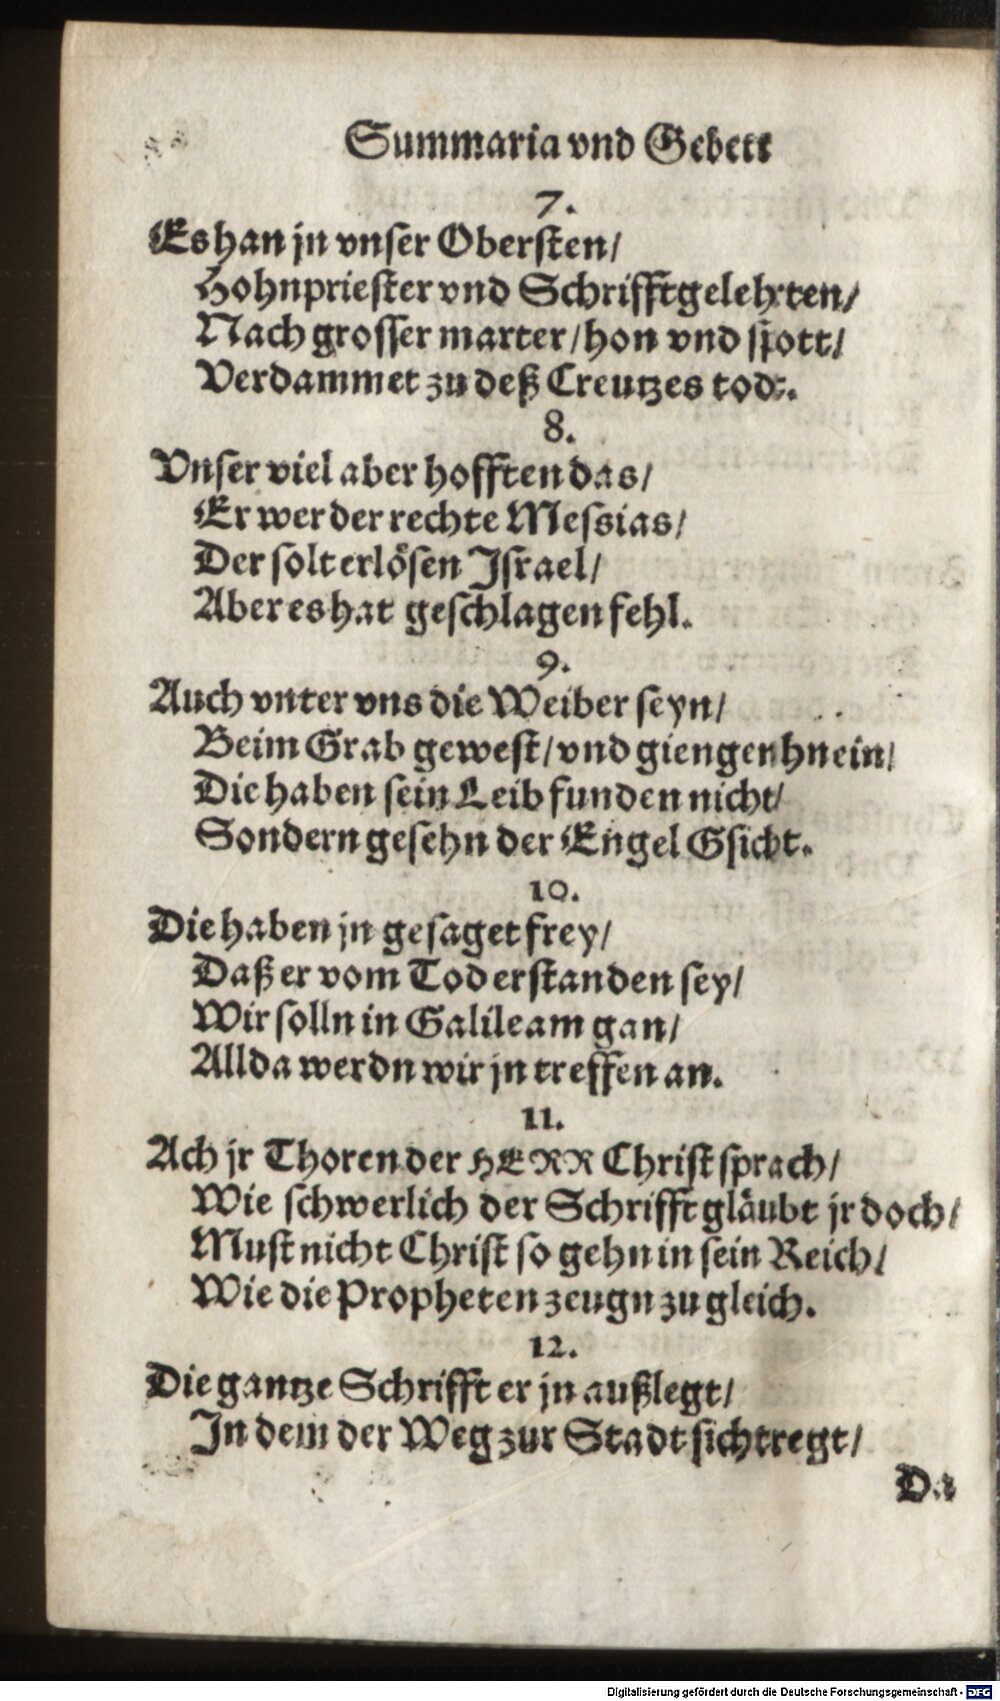 Summaria vnd Gebett
7.
Es han jn vnser Obersten/
Hohnpriester vnd Schrifftgelehrten/
Nach grosser marter/hon vnd spott/
Verdammet zu deß Creutzes tod.
8.
Vnser viel aber hofften das/
Er wer der rechte Messias/
Der solt erlösen Israel/
Aber es hat geschlagen fehl.
9.
Auch vnter vns die Weiber seyn/
Beim Grab gewest/vnd giengen hnein/
Die haben sein Leib funden nicht/
Sondern gesehn der Engel Gsicht.
10.
Die haben jn gesaget frey/
Daß er vom Tod erstanden sey/
Wir solln in Galileam gan/
Allda werdn wir jn treffen an.
11.
Ach jr Thoren der HERR Christ sprach/
Wie schwerlich der Schrifft gläubt jr doch/
Must nicht Christ so gehn in sein Reich/
Wie die Propheten zeugn zu gleich.
12.
Die gantze Schrifft er jn außlegt/
In dem der Weg zur Stadt sich tregt/
Da
Digitalisierung gefördert durch die Deutsche Forschungsgemeinschaft - DFG